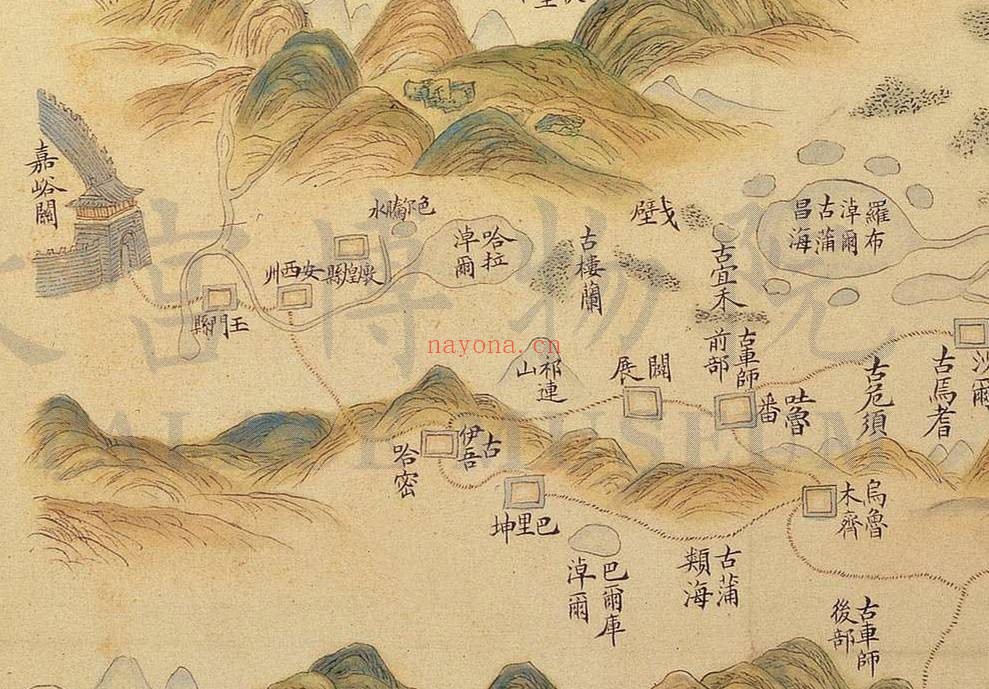 嘉峪關
敦煌縣
安西州
玉門縣
哈拉
淖爾
古樓蘭
戈壁
古宜禾
羅布
淖爾
古蒲
昌海
祁連
山
闢展
古車師
前部
吐魯
番
古危須
古焉耆
古
伊吾
哈密
巴里坤
巴爾庫
淖爾
古蒲
類海
烏魯
木齊
古車師
後部
宮博物院
AL MUSEUM
nayona.cn